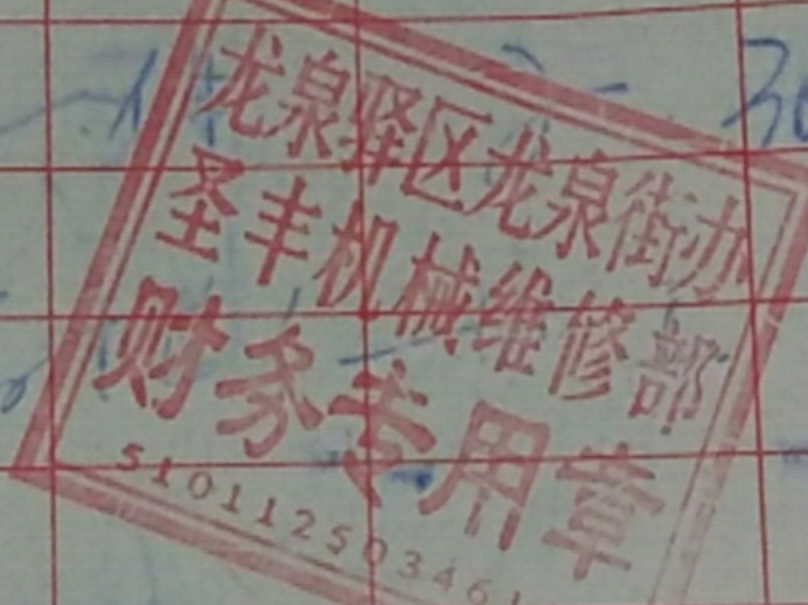 龙泉驿区龙泉街办
圣丰机械维修部
财务专用章
510112503461